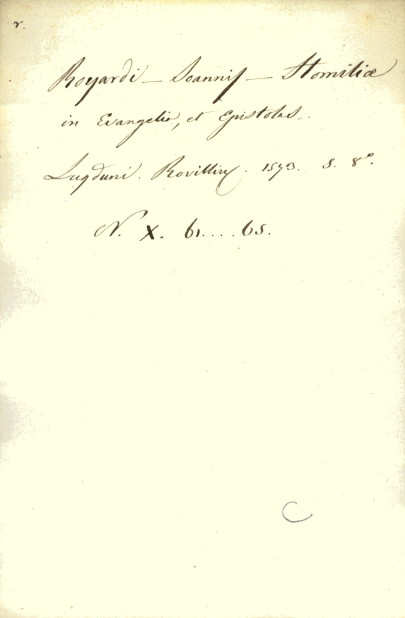 r.
Royardi - Joannis - Homiliæ
in Evangelia, et Epistolas.
Lugduni. Rovillius. 1573. 5. 8°.
N. X. 61....65.
C